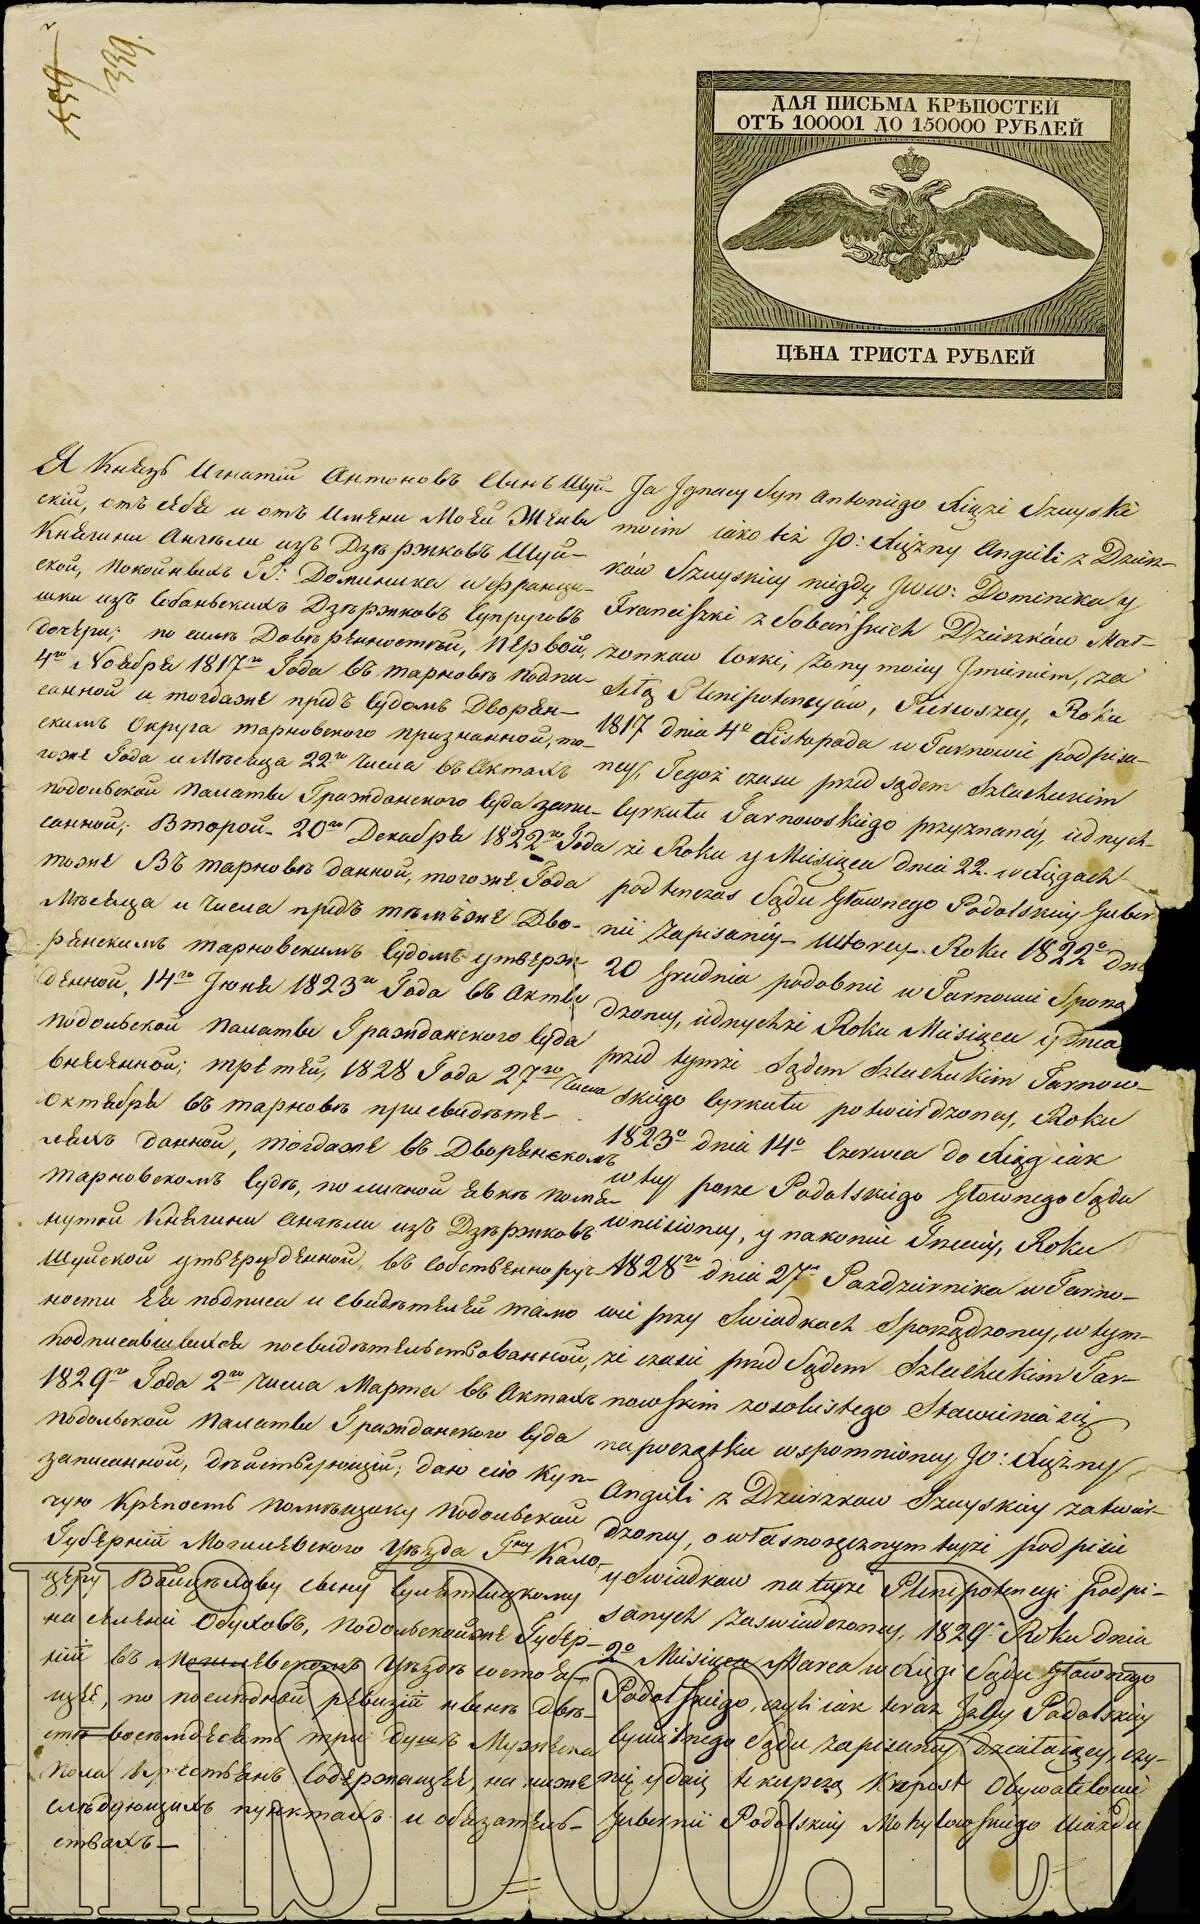 339.
ДЛЯ ПИСЬМА КРѢПОСТЕЙ
ОТЪ 100001 ДО 150000 РУБЛЕЙ
ЦѢНА ТРИСТА РУБЛЕЙ
Я Князь Игнатій Антоновъ Сынъ Шуй-
скій, отъ себя и отъ Имяни Моей Жены
Княгини Ангѣли изъ Дзѣржковъ Шуй-
ской, покойныхъ ГГ: Доминика и Франци-
шки изъ Собаньскихъ Дзѣржковъ Супруговъ
дочери; по силѣ Довѣренностей, Первой,
4го Ноября 1817го Года въ Тарновѣ подпи-
санной и тогдаже предъ Судомъ Дворян-
скимъ Округа Тарновского признанной, то-
гоже Года и Мѣсяца 22го Числа въ Актахъ
Подольской Палаты Гражданского Суда запи-
санной; Второй 20го Декабря 1822го Года
тоже Въ Тарновѣ данной, тогоже Года
Мѣсяца и Числа предъ тѣмъже Дво-
рянскимъ Тарновскимъ Судомъ утверж-
денной, 14го Іюня 1823го Года въ Акты
Подольской Палаты Гражданского Суда
внесенной; третей, 1828 Года 27го Числа
Октября въ Тарновѣ при свидѣте-
ляхъ данной, тогдаже въ Дворянскомъ
Тарновскомъ Судѣ, по личной явкѣ помя-
нутой Княгини Ангѣли изъ Дзѣржковъ
Шуйской утвержденной, въ собственноруч-
ности Ея подписа и свидѣтелей тамо
подписавшихся посвидѣтельствованной,
1829го Года 2го Числа Марта въ Актахъ
Подольской Палаты Гражданского Суда
записанной, дѣйствующій; даю сію Куп-
чую Крѣпость Помѣщику Подольской
Губерніи Могилевского Уѣзда
сыну
на селеній Обуховъ, Подольскойже Губер-
ній въ Могилевскомъ Уѣздѣ состоя-
щее, по последной ревизій нынѣ двѣ-
сти восемдесятъ три душъ Мужеска
пола крестьянъ содержащее, на ниже
слѣдующихъ пунктахъ и обязатель-
ствахъ—
Ja Ignacy Syn Antoniego Xiąże Szuyski
moim iako też JO: Xiężny Anieli z Dzierz-
ków Szuyskiey niegdy Jww: Dominika y
Franciszki z Sobańskich Dzierzków Mał-
żonków Corki, żony moiey Imieniem, za
Siłą Plenipotencyów, Pierwszey, Roku
1817 dnia 4o Listopada w Tarnowie podpisa-
ney, Tegoż czasu przed Sądem Szlacheckim
Cyrkułu Tarnowskiego przyznaney, iednych-
że Roku y Miesiąca dnia 22. w Xięgach
podtenczas Sądu Głownego Podolskiey Guber
nii Zapisaney— Wtorey— Roku 1822o dnia
20 Grudnia podobnie w Tarnowie Sporzą
dzoney, iednychże Roku Miesiąca y Dnia
przed tymże Sądem Szlacheckim Tarnow-
skiego Cyrkułu potwierdzoney, Roku
1823o dnia 14o Czerwca do Xiąg iak
w tey porze Podolskiego Głownego Sądu
wniesioney, y nakoniec Trzeciey, Roku
1828go dnia 27o Pazdziernika w Tarno-
wie przy Swiadkach Sporządzoney, w tym-
że czasie przed Sądem Szlacheckim Tar-
nowskim zosobistego Stawienia się
napoczątku wspomnioney JO: Xiężny
Anieli z Dzierzkow Szuyskiey zatwier-
dzoney, o własnoręcznym teyże podpisie
y Swiadkow na teyże Plenipotencyi Podpi-
sanych zaswiadczoney, 1829o Roku dnia
2o Miesiąca Marca w Xiędze Sądu Głownego
Podolskiego, czyli iak teraz Izby Podolskiey
Cywilnego Sądu zapisaney działaiący, czy-
nię y daię te kupczą Krepost Obywatelowi
Gubernii Podolskiey Mohylowskiego Uiazdu